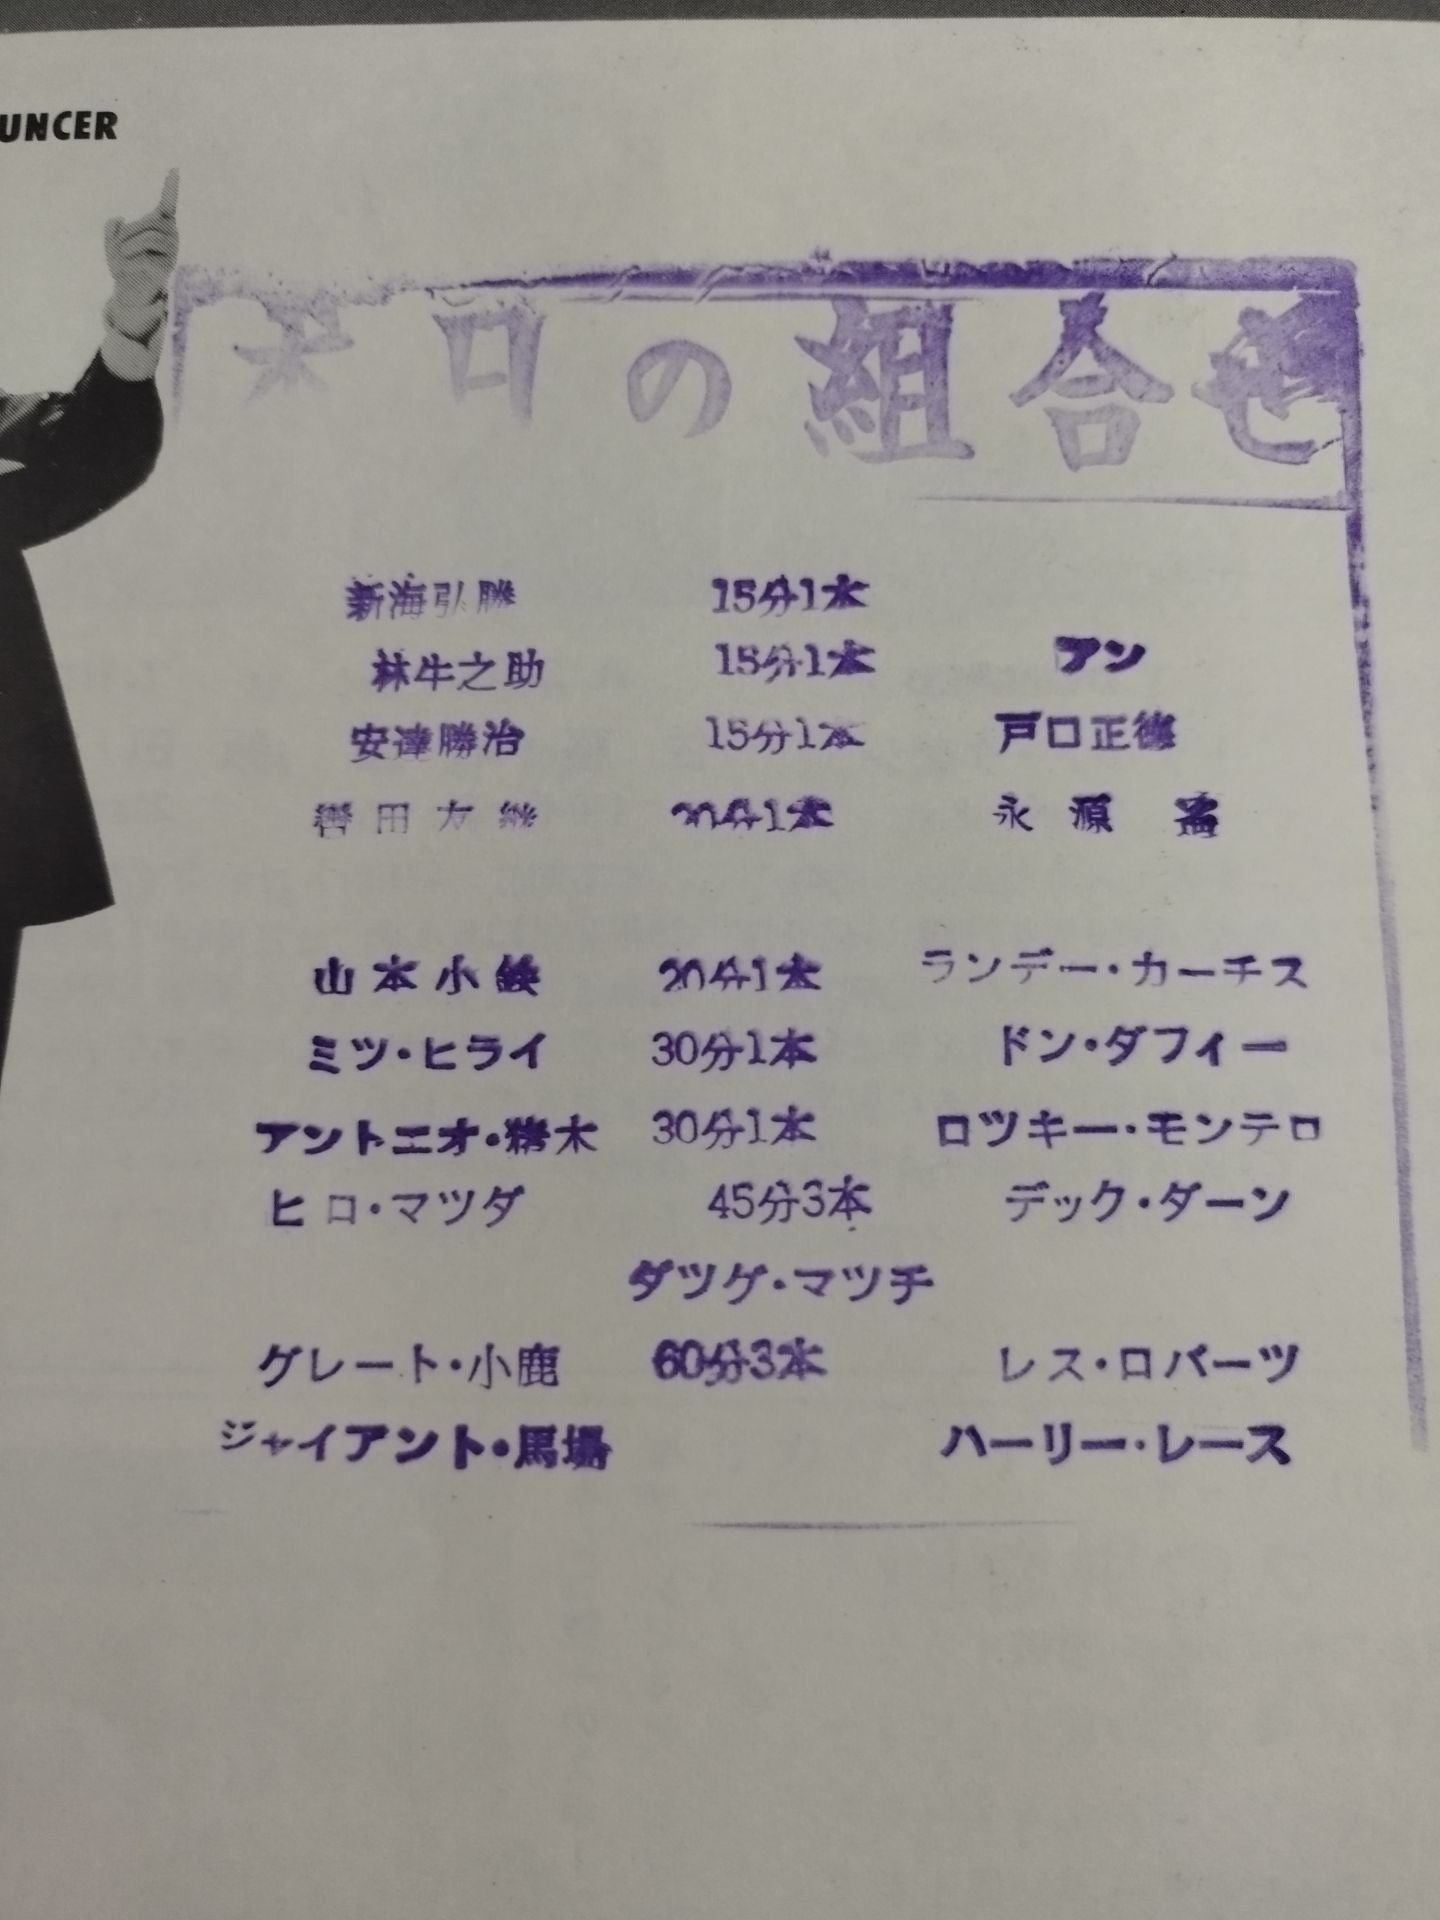 UNCER
本日の組合せ
新海弘勝 15分1本
林牛之助 15分1本 アン
安達勝治 15分1本 戸口正徳
轡田友継 20分1本 永源遙
山本小鉄 20分1本 ランデー・カーチス
ミツ・ヒライ 30分1本 ドン・ダフィー
アントニオ・猪木 30分1本 ロツキー・モンテロ
ヒロ・マツダ 45分3本 デック・ダーン
ダツグ・マツチ
グレート・小鹿 60分3本 レス・ロバーツ
ジャイアント・馬場 ハーリー・レース